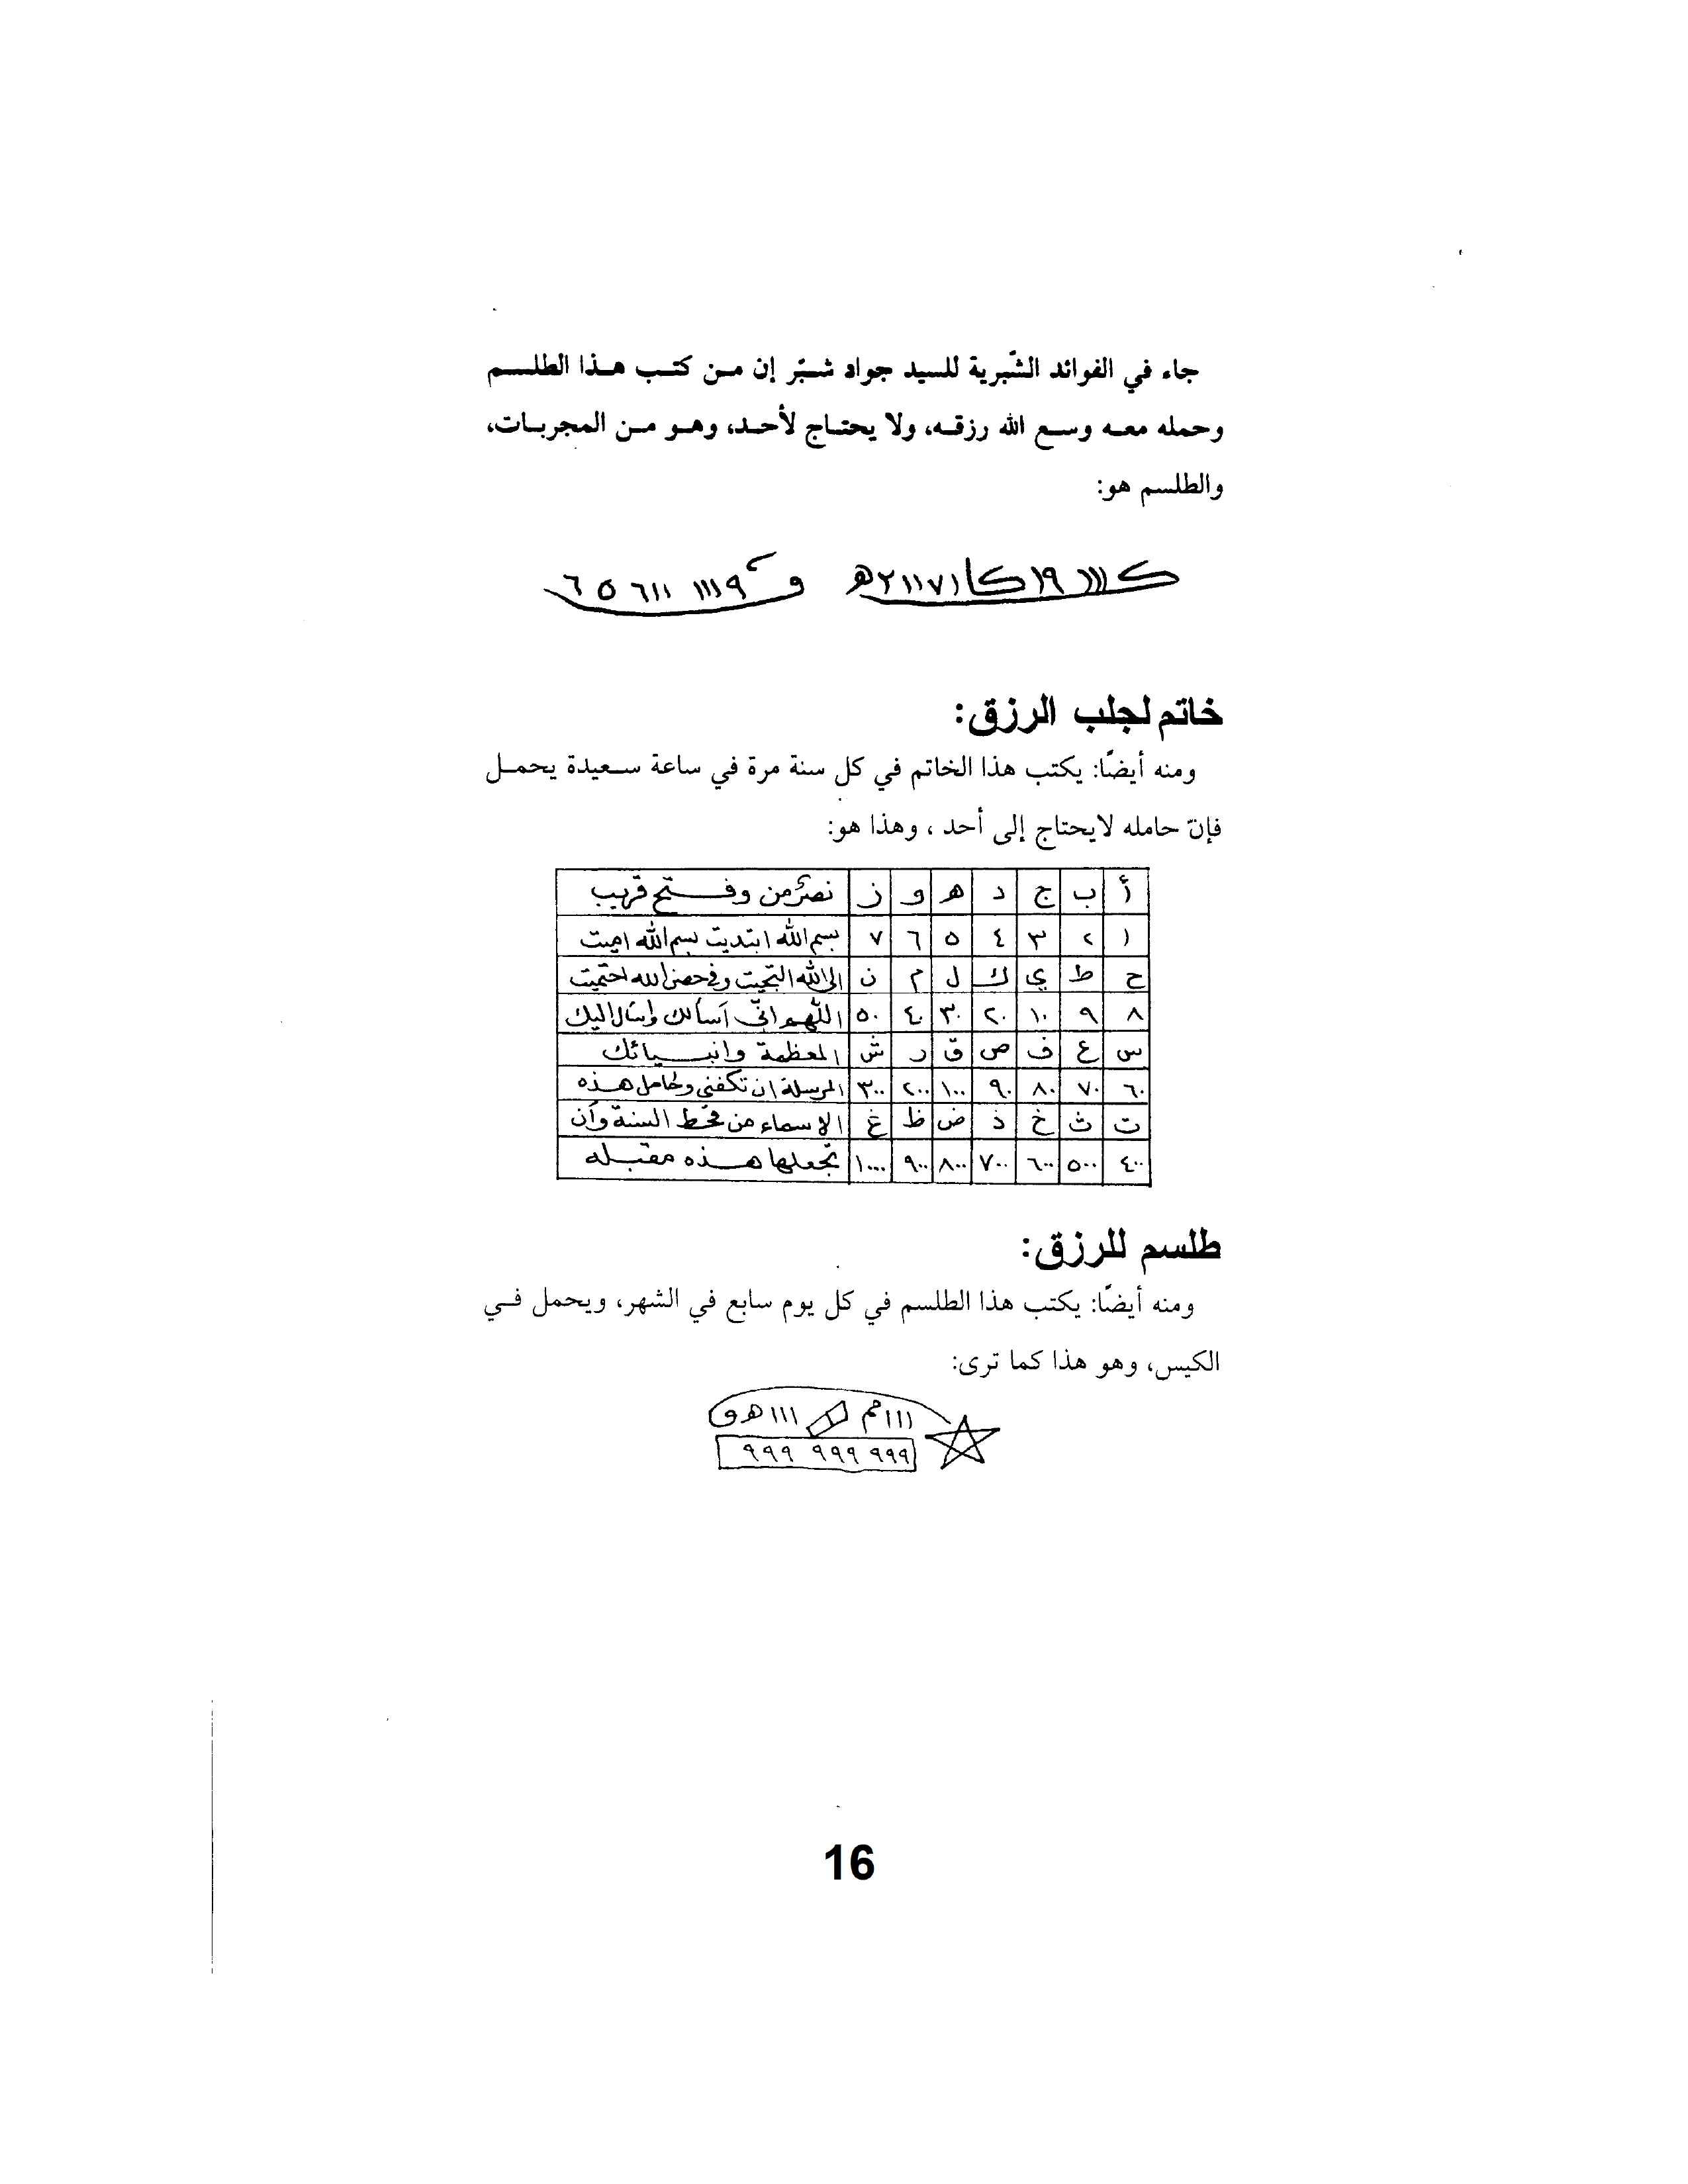 جاء في الفوائد الشّبرية للسيد جواد شبّر إن من كتب هذا الطلسم
وحمله معه وسع الله رزقه، ولا يحتاج لأحد، وهو من المجربات،
والطلسم هو:
خاتم لجلب الرزق:
ومنه أيضًا: يكتب هذا الخاتم في كل سنة مرة في ساعة سعيدة يحمل
فإنّ حامله لايحتاج إلى أحد ، وهذا هو:
أ ب ج د ه و ز نصرٌ من وفتح قريب
١ ٢ ٣ ٤ ٥ ٦ ٧ بسم الله ابتديت بسم الله
ح ط ي ك ل م ن الى الله التجيت وفي حصن الله احتميت
٨ ٩ ١٠ ٢٠ ٣٠ ٤٠ ٥٠ اللهم انّي أسألك اليك
س ع ف ص ق ر ش المعظمة وانبيائك
٦٠ ٧٠ ٨٠ ٩٠ ١٠٠ ٢٠٠ ٣٠٠ المرسلة ان تكفني ولحامل هذه
ت ث خ ذ ض ظ غ الاسماء من قحط السنة وأن
٤٠٠ ٥٠٠ ٦٠٠ ٧٠٠ ٨٠٠ ٩٠٠ ١٠٠٠ تجعلها هذه مقبله
طلسم للرزق:
ومنه أيضًا: يكتب هذا الطلسم في كل يوم سابع في الشهر، ويحمل في
الكيس، وهو هذا كما ترى:
٩٩٩ ٩٩٩ ٩٩٩
16